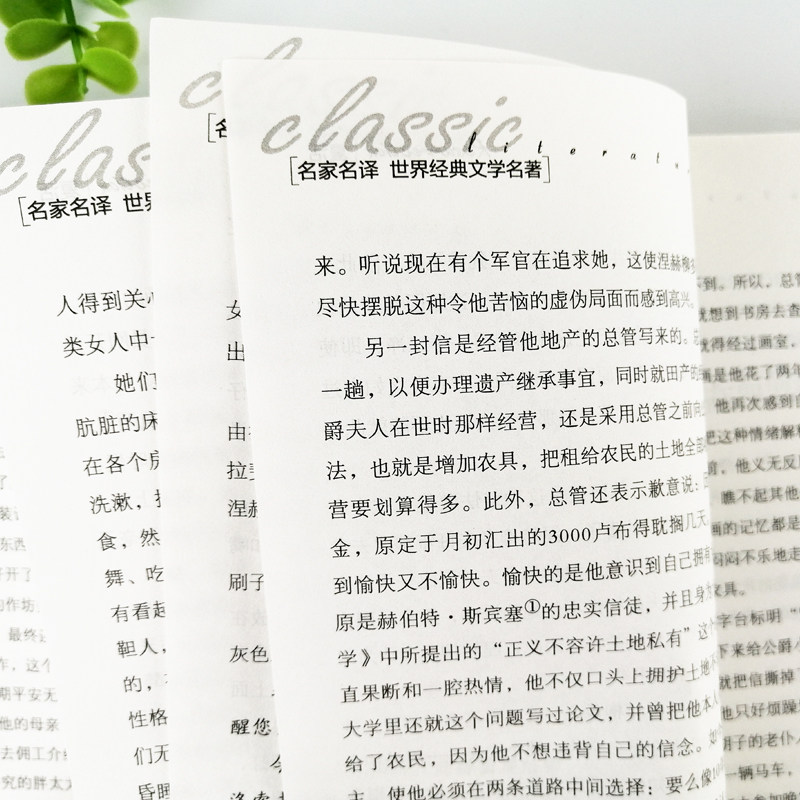 classic
literatu
[名家名译 世界经典文学名著]
来。听说现在有个军官在追求她，这使涅赫柳
尽快摆脱这种令他苦恼的虚伪局面而感到高兴。
另一封信是经管他地产的总管写来的。
一趟，以便办理遗产继承事宜，同时就田产的
爵夫人在世时那样经营，还是采用总管之前向
法，也就是增加农具，把租给农民的土地全部
营要划算得多。此外，总管还表示歉意说：
金，原定于月初汇出的3000卢布得耽搁几天
到愉快又不愉快。愉快的是他意识到自己拥有
原是赫伯特·斯宾塞①的忠实信徒，并且身
学》中所提出的“正义不容许土地私有”这个
直果断和一腔热情，他不仅口头上拥护土地
大学里还就这个问题写过论文，并曾把他本人
给了农民，因为他不想违背自己的信念。
主，使他必须在两条道路中间选择：要么像
clas
[名家名译 世界
人得到关心
类女人中
她们
肮脏的床
在各个房
洗漱，
食，然
舞、吃
有看起
靼人，
的，
性格
们无
昏睡
c
[名
女
出
由
拉
涅赫
刷子
灰色
醒您
东西
开了
的作坊
最终
作，这个
期平安无
他的母亲
去佣工介
究的胖太
到。所以，总管
就想到书房去查
就得经过画室，
画是他花了两年
他再次感到自
把这种情绪解释
前，他义无反
瞧不起其他
画的记忆都是
闷闷不乐地走
家具。
字台标明“
下来给公爵
就把信撕掉了
他只好烦躁
胡子的老仆人
一辆马车，